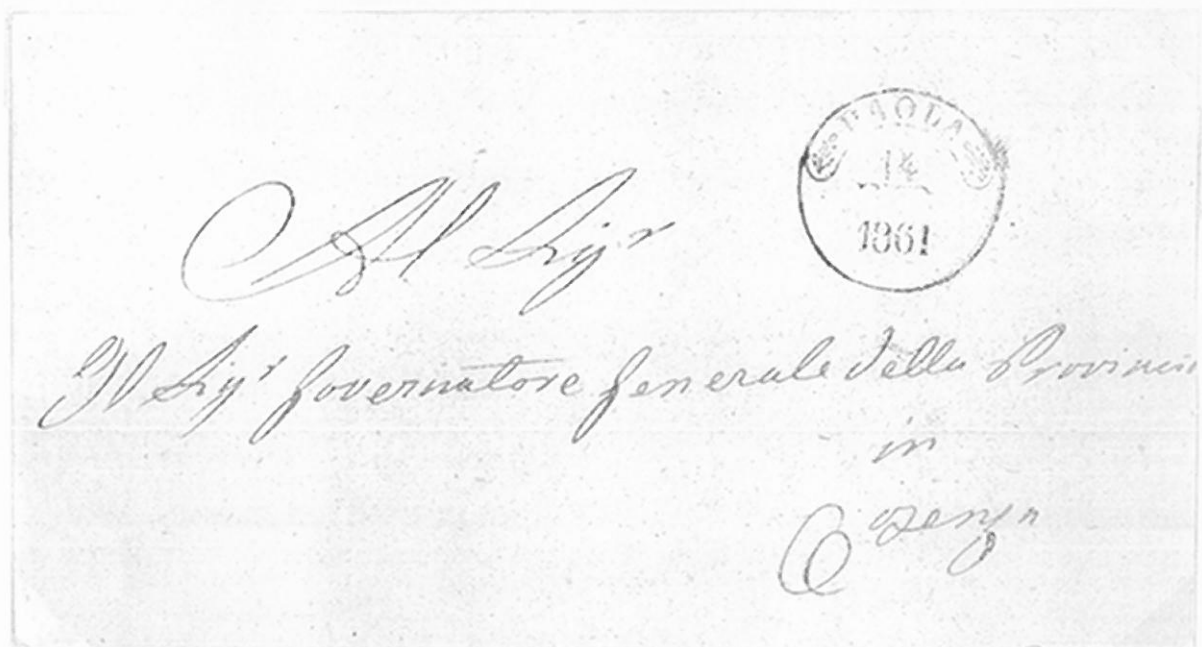 PAOLA
14
1861
Al Sigr
Il Sigr Governatore Generale della Provincia
in
Cosenza